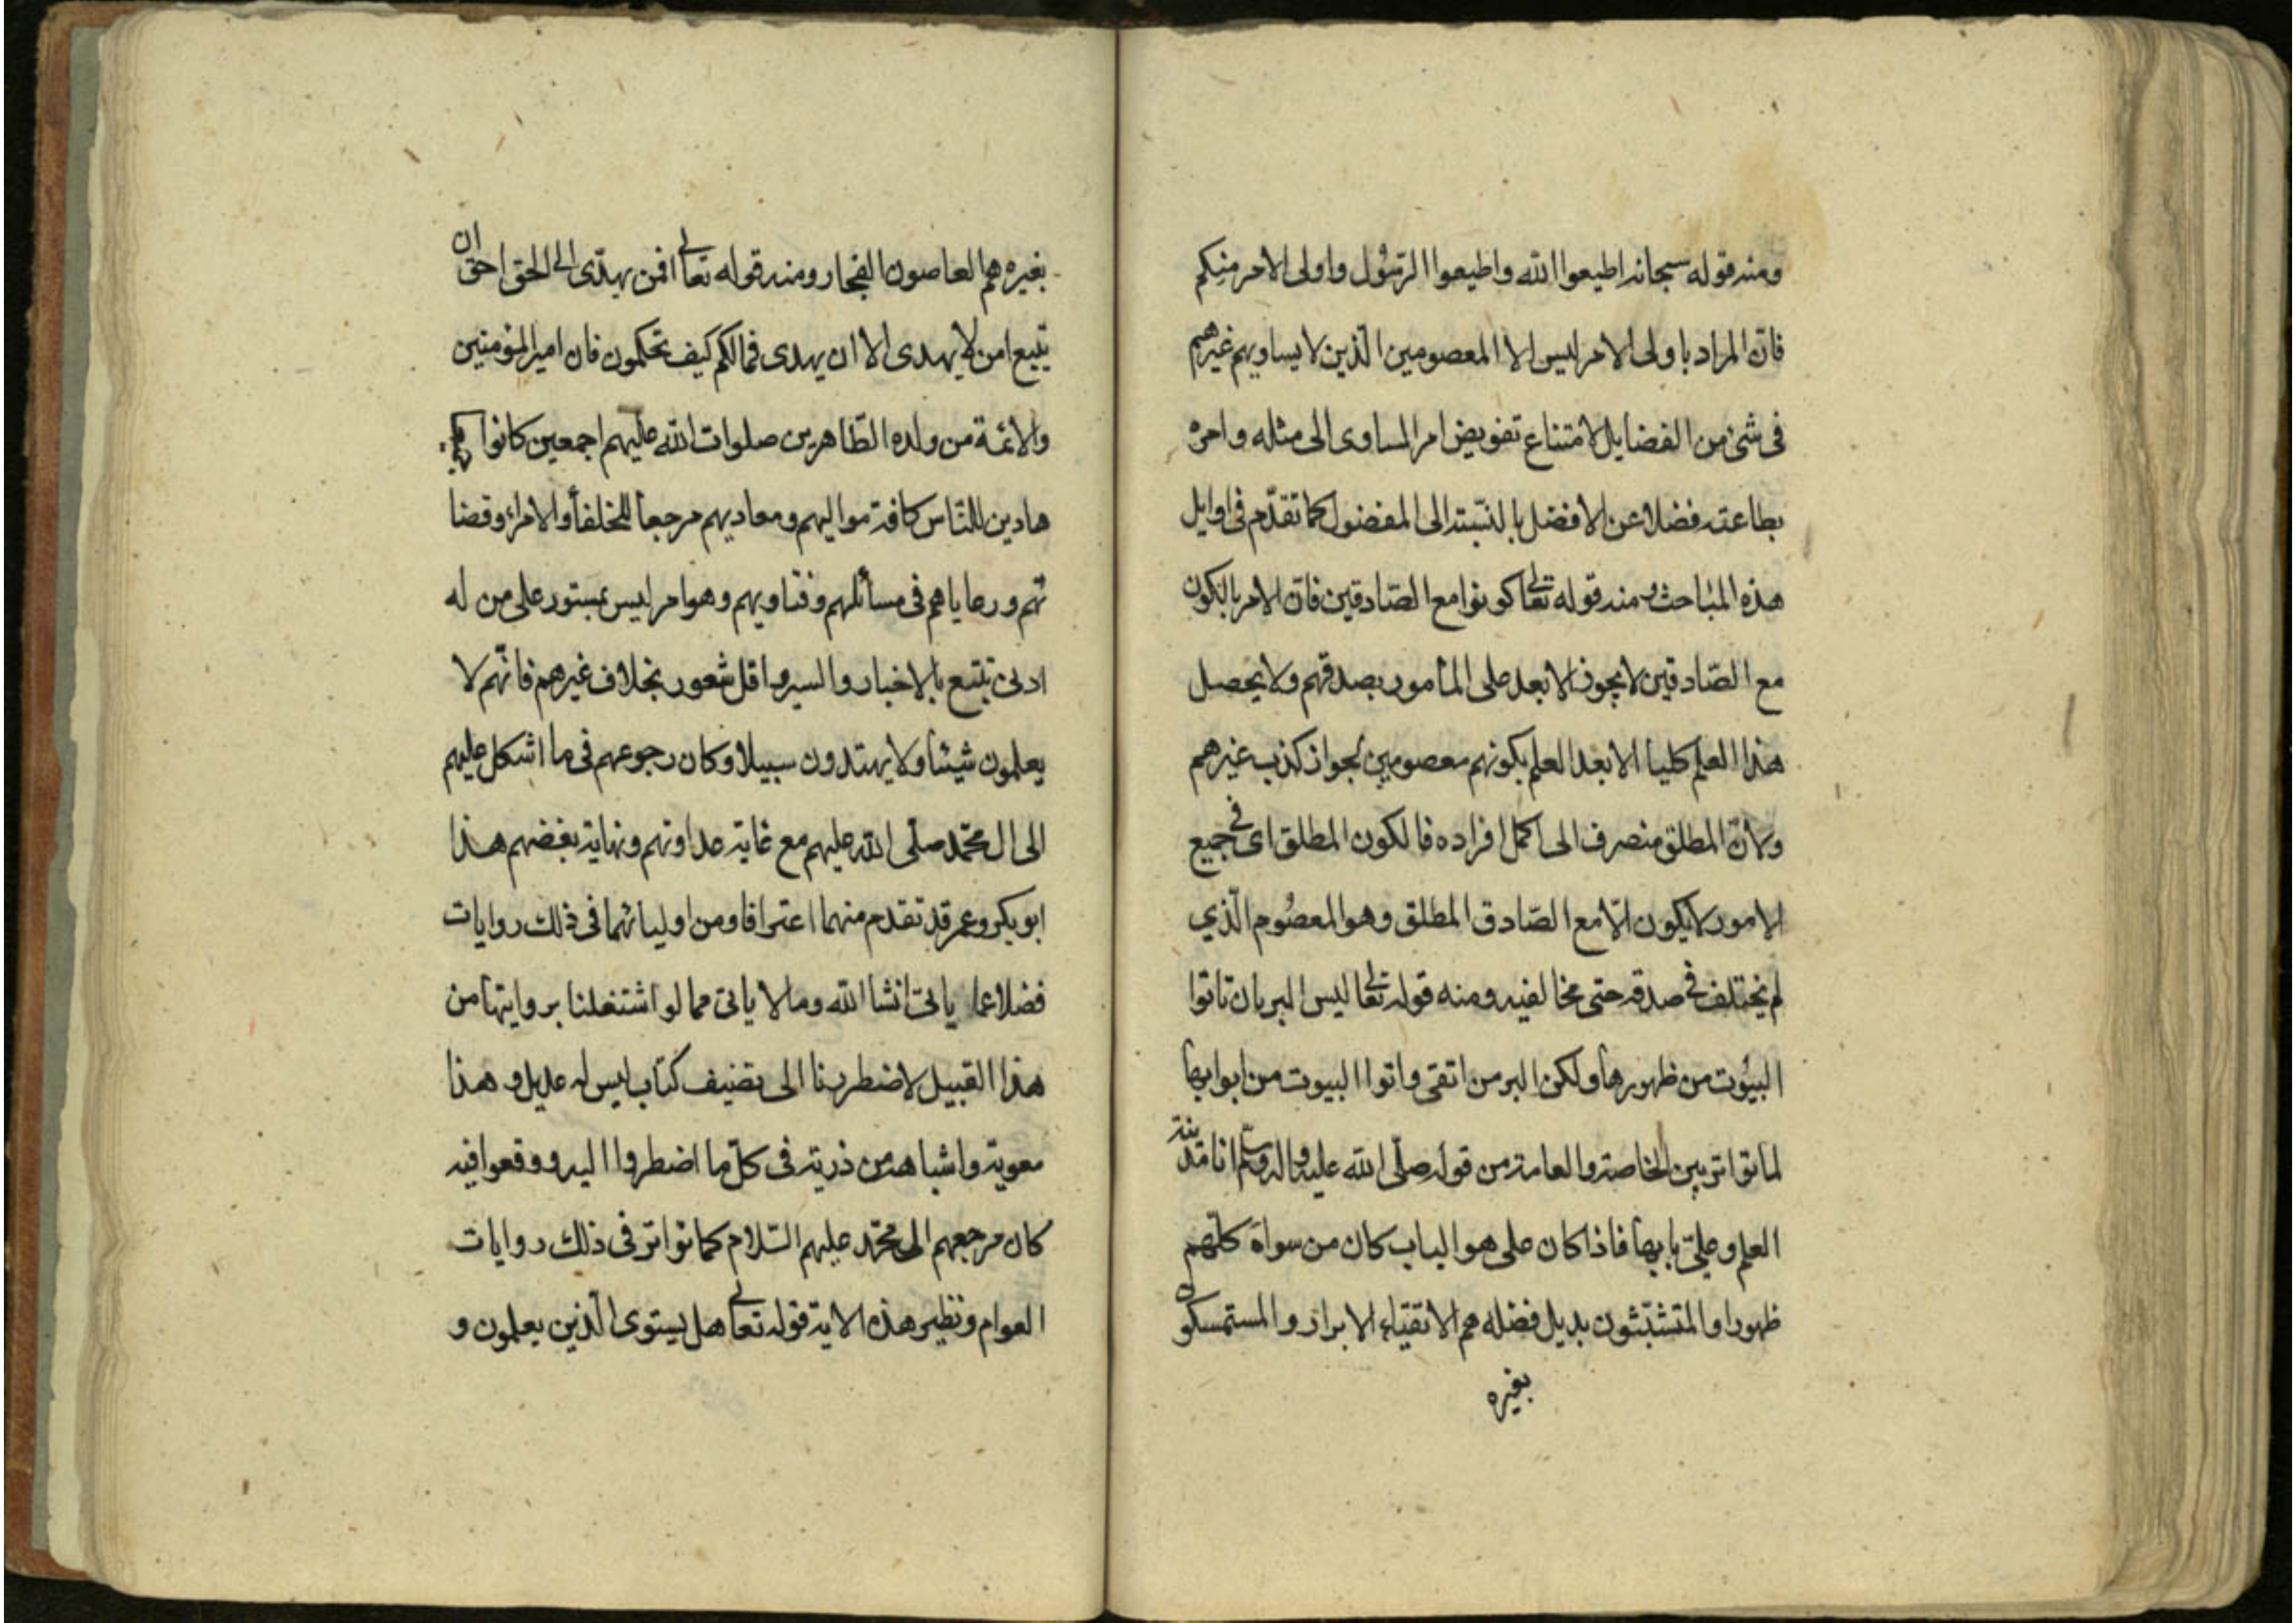 ومنه قوله سبحانه اطيعوا الله واطيعوا الرسول واولى الامر منكم
فانّ المراد باولى الامر ليس الا المعصومين الّذين لا يساويهم غيرهم
فى شئ من الفضايل لامتناع تفويض امر المساوى الى مثله وامره
بطاعته فضلا عن الافضل بالنسبته الى المفضول كما تقدّم فى اوايل
هذه المباحث ومنه قوله تعالى كونوا مع الصّادقين فانّ الامر بالكون
مع الصّادقين لا يجوز الا بعد على المامور بصدقهم ولا يحصل
هذا العلم كليا الا بعد العلم بكونهم معصومين لجواز كذب غيرهم
ولانّ المطلق منصرف الى اكمل افراده فالكون المطلق اى فى جميع
الامور لا يكون الّا مع الصّادق المطلق وهو المعصوم الّذي
لم يختلف فى صدقه حتى مخالفيه ومنه قوله تعالى ليس البر بان تاتوا
البيوت من ظهورها ولكن البر من اتقى واتوا البيوت من ابوابها
لما تواتر بين الخاصة والعامة من قوله صلّى الله عليه واله وسلّم انا مدينة
العلم وعلىّ بابها فاذا كان على هو الباب كان من سواه كلّهم
ظهورا والمتشبّثون بديل فضله هم الاتقياء الابرار والمستمسكون
بغيره
بغيره هم العاصون الفجار ومنه قوله تعالى افمن يهدّى الى الحق احق ان
يتبع امن لا يهدى الا ان يهدى فمالكم كيف تحكمون فان امير المؤمنين
والائمة من ولده الطّاهرين صلوات الله عليهم اجمعين كانوا
هادين للنّاس كافة مواليهم ومعاديهم مرجعا للخلفا والامراء وقضا
تهم ورعاياهم فى مسائلهم وفتاويهم وهو امر ليس بمستور على من له
ادنى تتبع بالاخبار والسير واقل شعور بخلاف غيرهم فانّهم لا
يعلمون شيئا ولا يهتدون سبيلا وكان رجوعهم فى ما اشكل عليهم
الى ال محمّد صلّى الله عليهم مع غاية عداوتهم ونهاية بغضهم هذا
ابو بكر وعمر قد تقدم منهما اعترافا ومن اوليائهما فى ذلك روايات
فضلا عما ياتى انشا الله وما لا ياتى مما لو اشتغلنا بروايتها من
هذا القبيل لاضطربنا الى تصنيف كتاب ليس له عديل و هذا
معوية واشباهه من ذريته فى كلّ ما اضطروا اليه ووقعوا فيه
كان مرجعهم الى محمّد عليهم السّلام كما تواتر فى ذلك روايات
العوام ونظير هذه الاية قوله تعالى هل يستوى الّذين يعلمون و